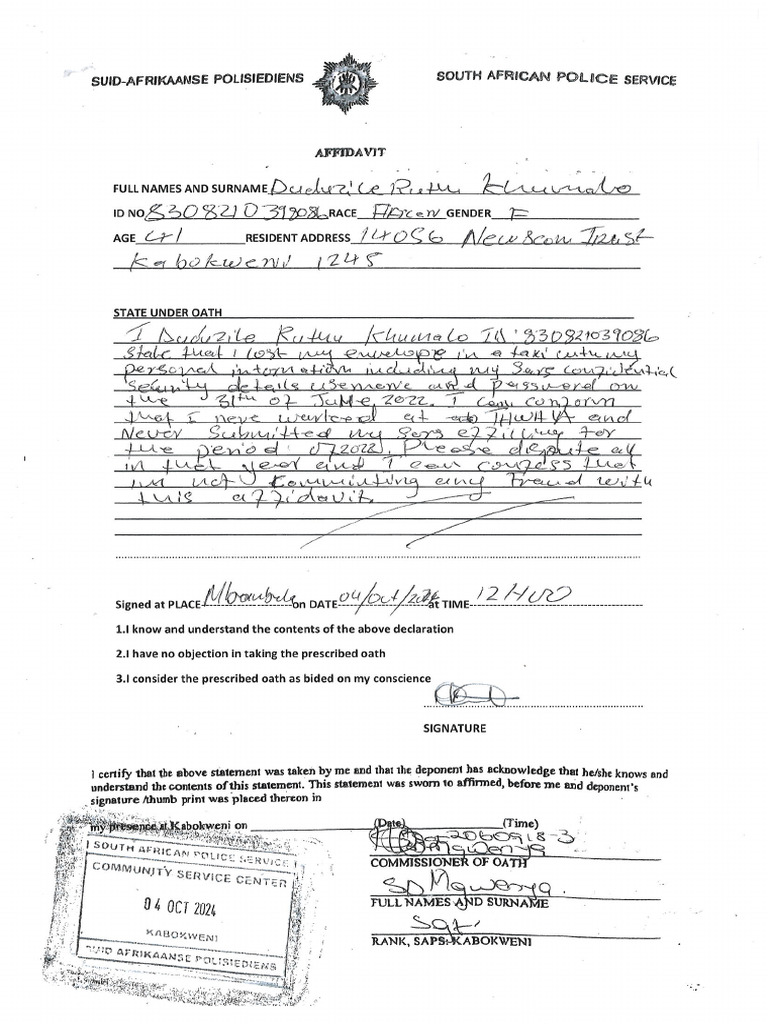 SUID-AFRIKAANSE POLISIEDIENS SOUTH AFRICAN POLICE SERVICE
AFFIDAVIT
FULL NAMES AND SURNAME Duduzile Ruth Khumalo
ID NO 8308210398086 RACE African GENDER F
AGE 41 RESIDENT ADDRESS 14056 Newscom Trust
Kabokweni 1245
STATE UNDER OATH
I Duduzile Ruth Khumalo ID: 830821039086
State that I lost my envelope in a taxi with my
personal information including my Sars confidential
security details usename and password on
the 31th of June 2022. I can conform
that I neve worked at THWHYA and
Never Submitted my Sars effiling for
the period: 072022. Please dispute all
in that year and I can confess that
im not Comminting any Fraud with
this affidavit.
Signed at PLACE Mbombela on DATE 04/Oct/2024 at TIME 12H00
1.I know and understand the contents of the above declaration
2.I have no objection in taking the prescribed oath
3.I consider the prescribed oath as bided on my conscience
SIGNATURE
I certify that the above statement was taken by me and that the deponent has acknowledge that he/she knows and
understand the contents of this statement. This statement was sworn to affirmed, before me and deponent's
signature /thumb print was placed thereon in
my presence at Kabokweni on (Date) (Time)
2060918-3
Mgwenya
COMMISSIONER OF OATH
SD Mgwenya.
FULL NAMES AND SURNAME
Sgt.
RANK, SAPS:KABOKWENI
SOUTH AFRICAN POLICE SERVICE
COMMUNITY SERVICE CENTER
04 OCT 2024
KABOKWENI
SUID AFRIKAANSE POLISIEDIENS